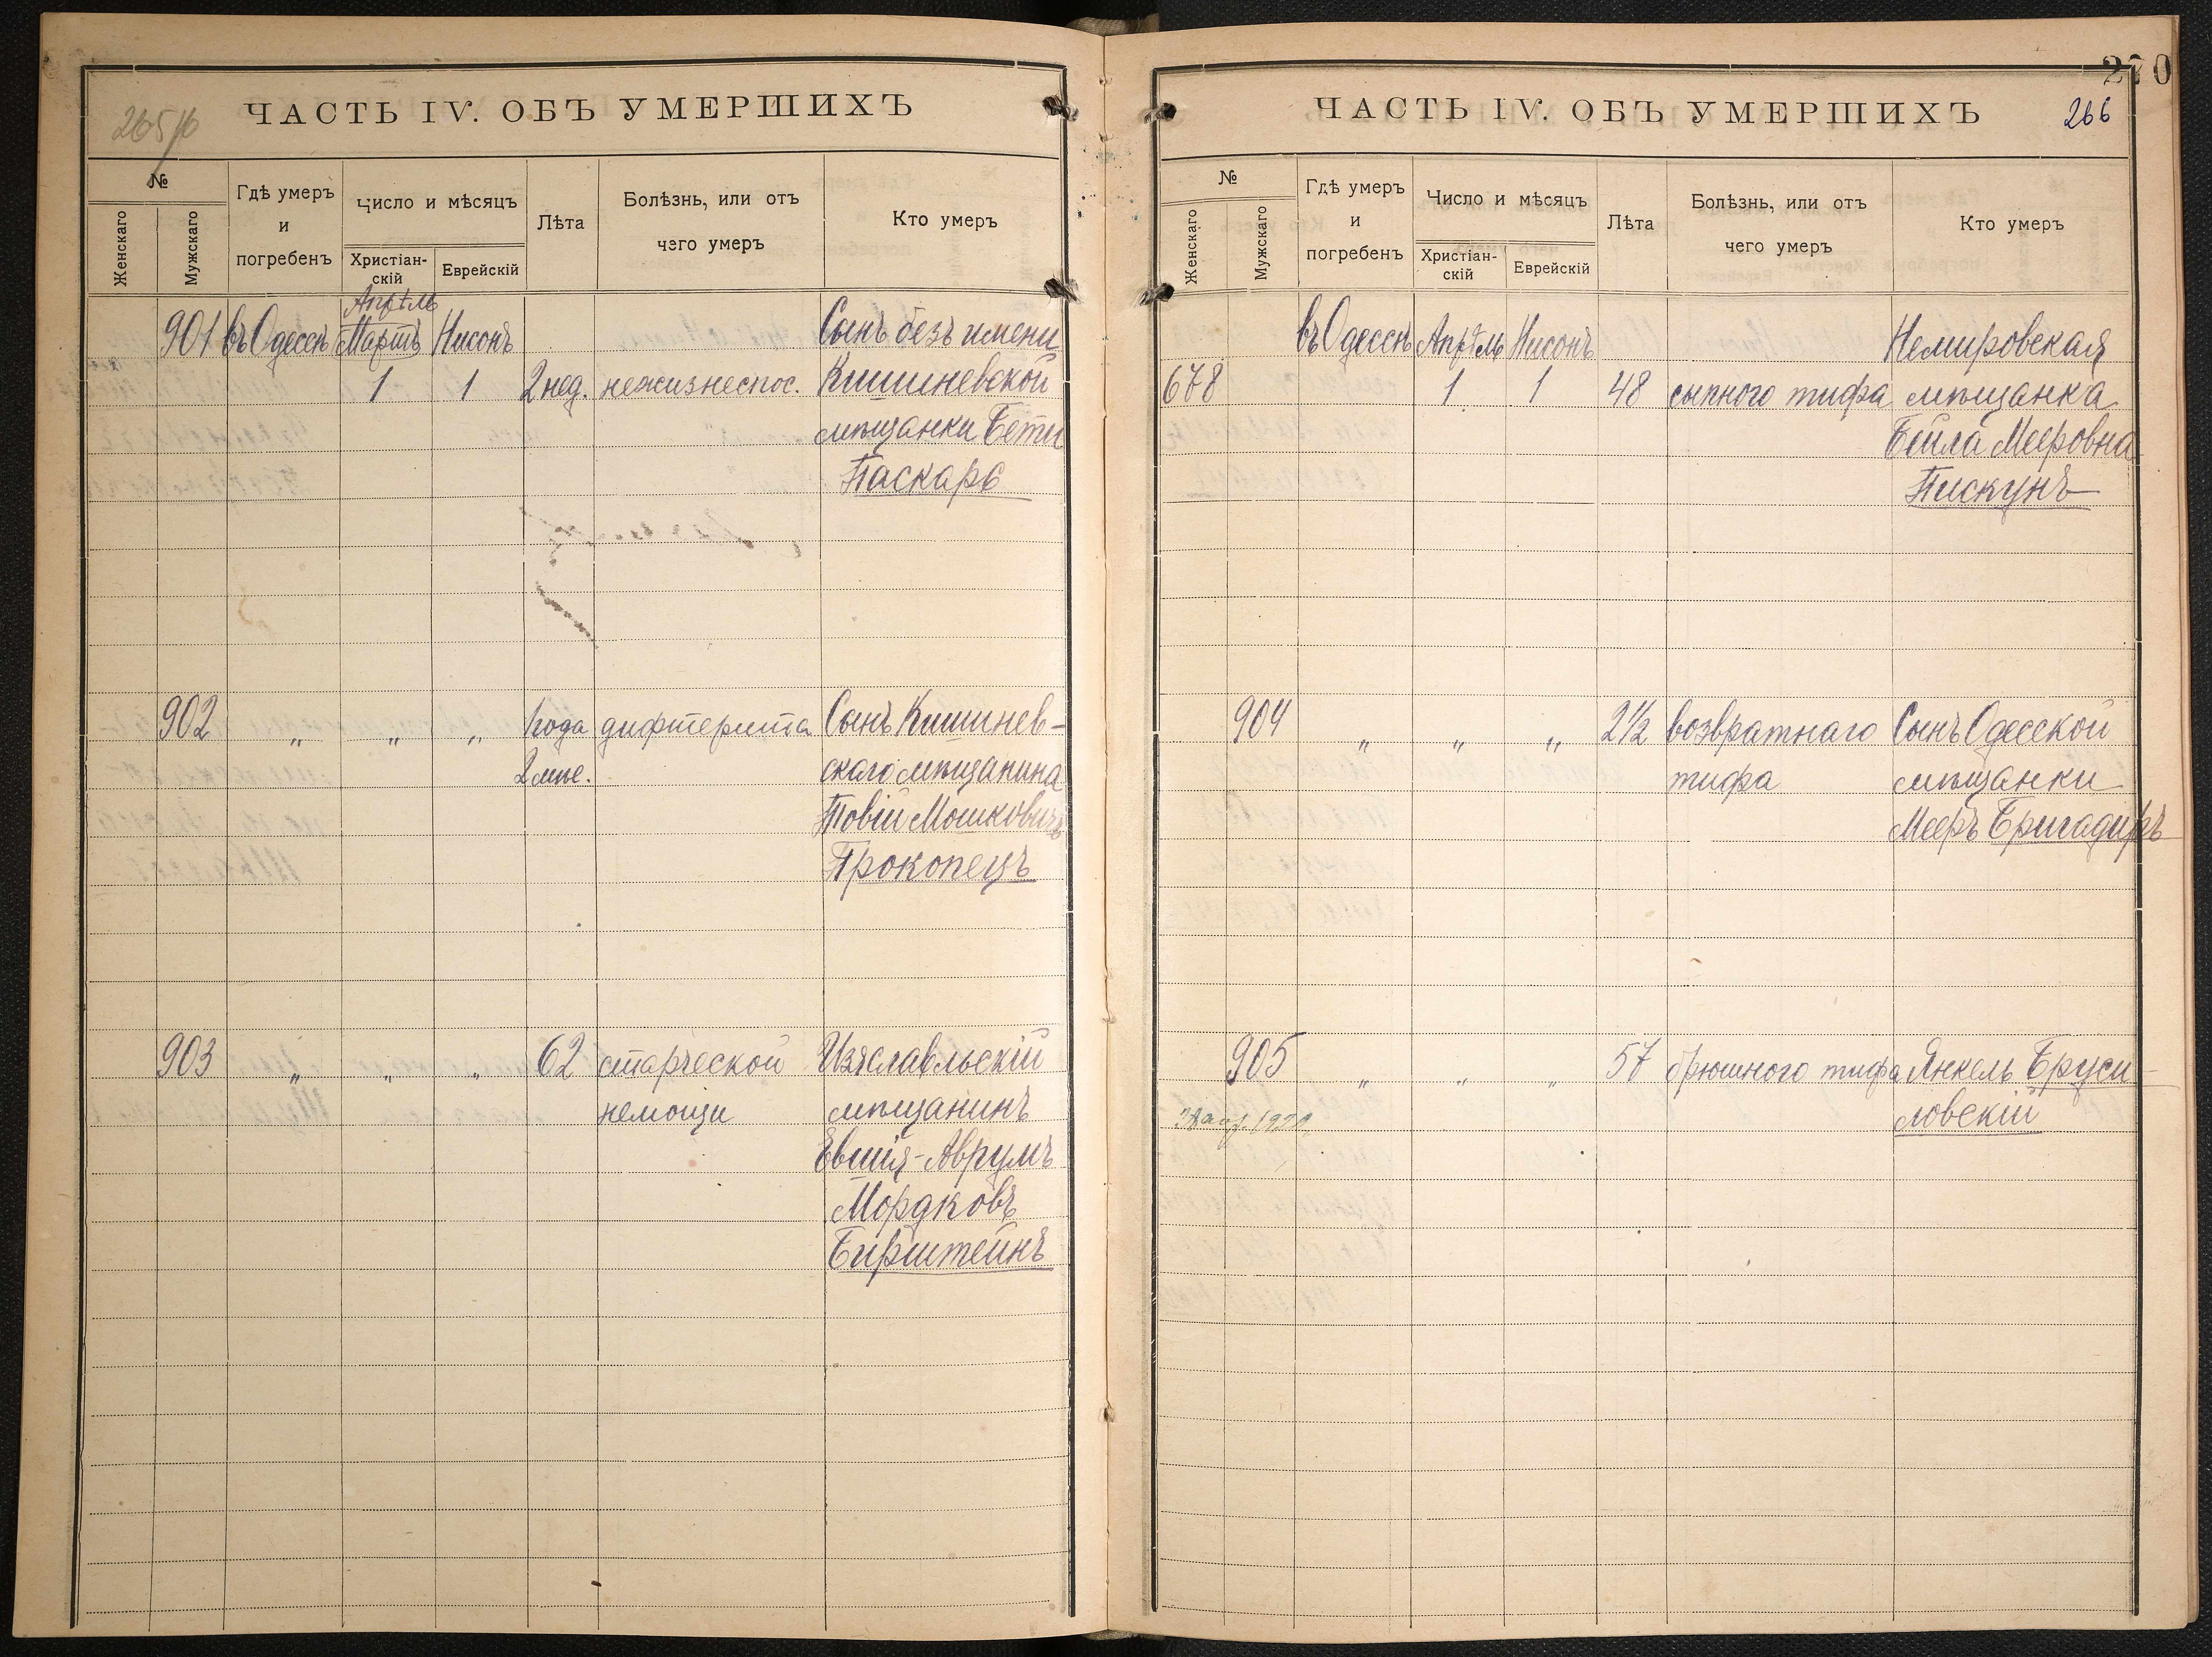 265/об
ЧАСТЬ IV. ОБЪ УМЕРШИХЪ
№
Женскаго
Мужскаго
Гдѣ умеръ
и
погребенъ
Число и мѣсяцъ
Христіан-
скій
Еврейскій
Лѣта
Болѣзнь, или отъ
чего умеръ
Кто умеръ
Апрѣль
901 въ Одессѣ Мартъ Нисонъ Сынъ безъ имени
1 1 2 нед. нежизнеспос. Кишиневской
мѣщанки Бети
Паскарь
902 " " " 1 года дифтерита Сынъ Кишинев-
2 мѣс. скаго мѣщанина
Товій Мошковичъ
Прокопецъ
903 " " " 62 старческой Изяславльскій
немощи мѣщанинъ
Евшія-Аврумъ
Мордковъ
Бирштейнъ
270
266
ЧАСТЬ IV. ОБЪ УМЕРШИХЪ
№
Женскаго
Мужскаго
Гдѣ умеръ
и
погребенъ
Число и мѣсяцъ
Христіан-
скій
Еврейскій
Лѣта
Болѣзнь, или отъ
чего умеръ
Кто умеръ
въ Одессѣ Апрѣль Нисонъ Немировская
678 1 1 48 сыпного тифа мѣщанка
Бейла Мееровна
Пискунъ
904 " " " 2½ возвратнаго Сынъ Одесской
тифа мѣщанки
Мееръ Бригадиръ
905 " " " 57 брюшного тифа Янкель Бруси-
ловскій